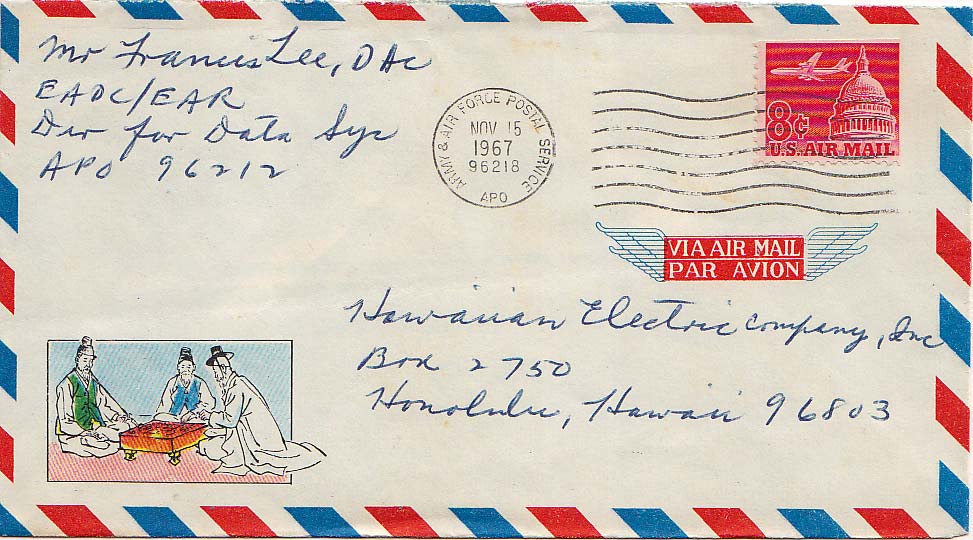 Mr Francis Lee, DAC
EADC/EAR
Dir for Data Sys
APO 96212
ARMY & AIR FORCE POSTAL SERVICE
NOV 15
1967
96218
APO
8¢
U.S. AIR MAIL
VIA AIR MAIL
PAR AVION
Hawaiian Electric Company, Inc
Box 2750
Honolulu, Hawaii 96803